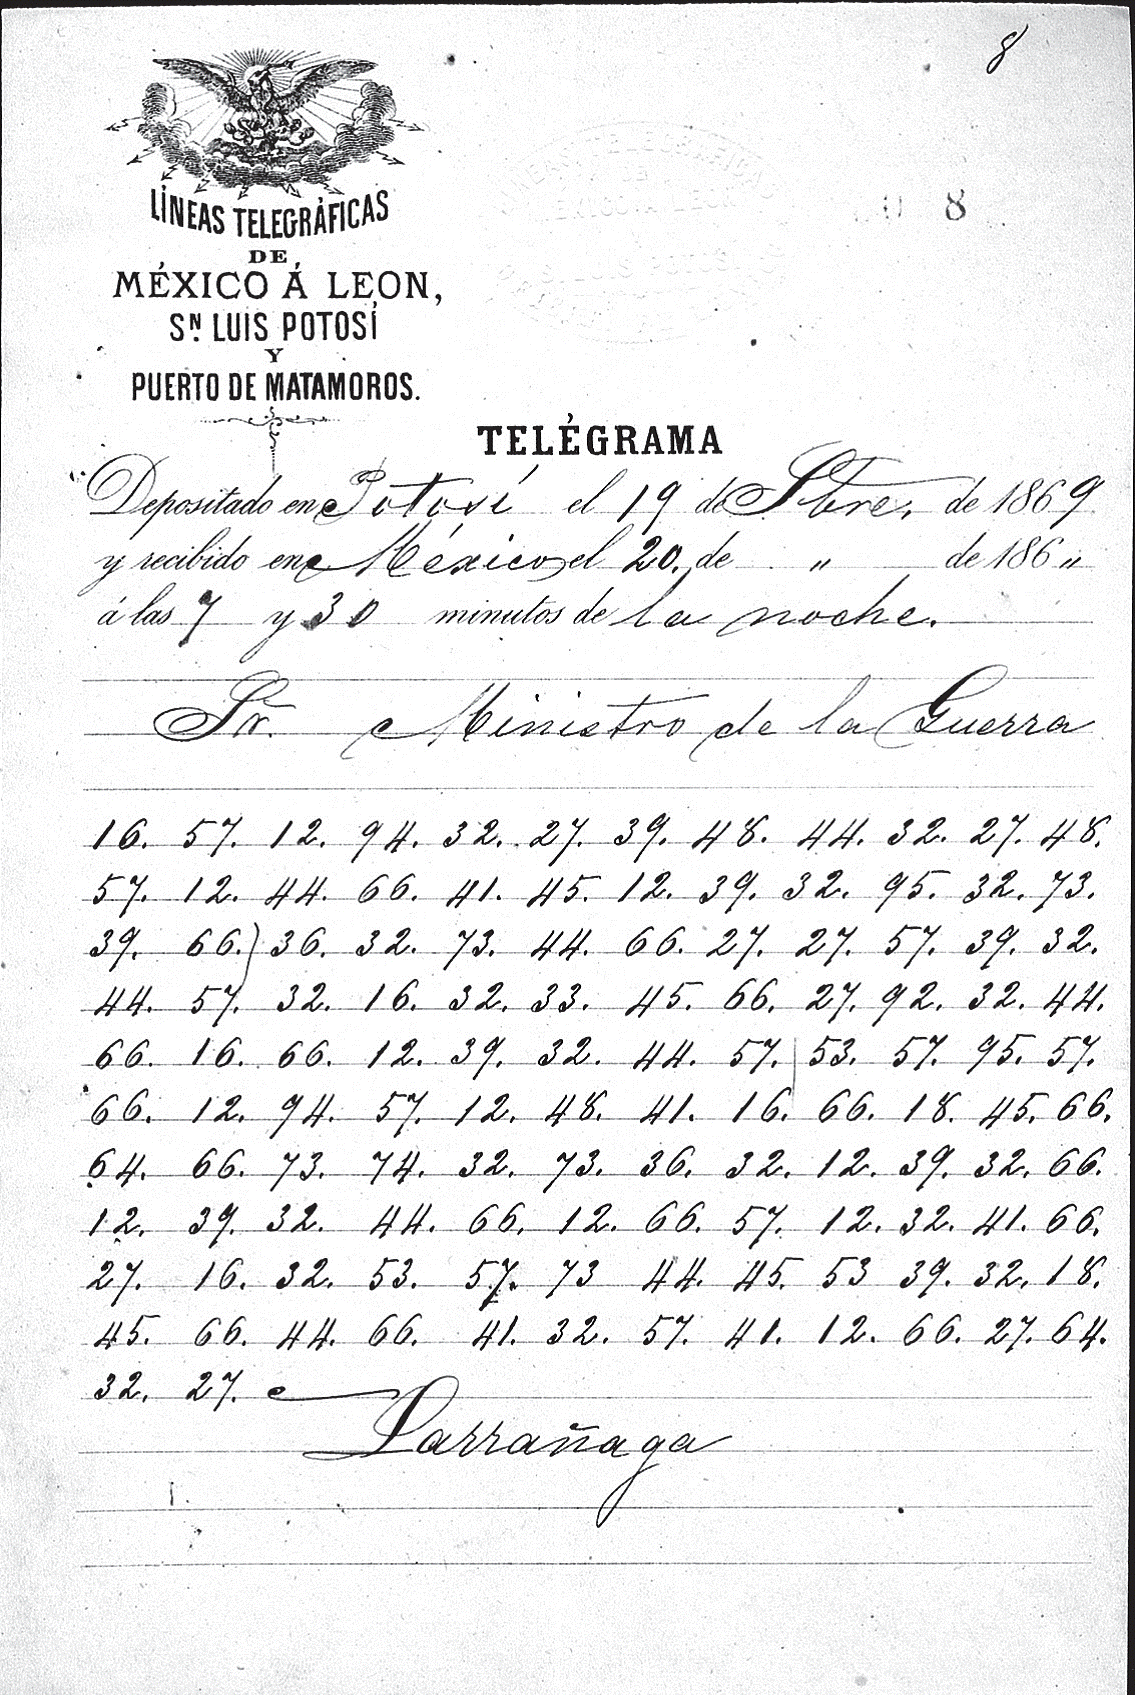 8
8
LÍNEAS TELEGRÁFICAS
DE
MÉXICO Á LEON,
SN. LUIS POTOSÍ
Y
PUERTO DE MATAMOROS.
TELÉGRAMA
Depositado en Potosí el 19 de Stbre. de 1869
y recibido en México el 20. de " de 186 "
á las 7 y 30 minutos de la noche.
Sr. Ministro de la Guerra
16. 57. 12. 94. 32. 27. 39. 48. 44. 32. 27. 48.
57. 12. 44. 66. 41. 45. 12. 39. 32. 95. 32. 73.
39. 66.) 36. 32. 73. 44. 66. 27. 27. 57. 39. 32.
44. 57. 32. 16. 32. 33. 45. 66. 27. 92. 32. 44.
66. 16. 66. 12. 39. 32. 44. 57. 53. 57. 95. 57.
66. 12. 94. 57. 12. 48. 41. 16. 66. 18. 45. 66.
64. 66. 73. 74. 32. 73. 36. 32. 12. 39. 32. 66.
12. 39. 32. 44. 66. 12. 66. 57. 12. 32. 41. 66.
27. 16. 32. 53. 57. 73 44. 45. 53 39. 32. 18.
45. 66. 44. 66. 41. 32. 57. 41. 12. 66. 27. 64.
32. 27.
Larrañaga